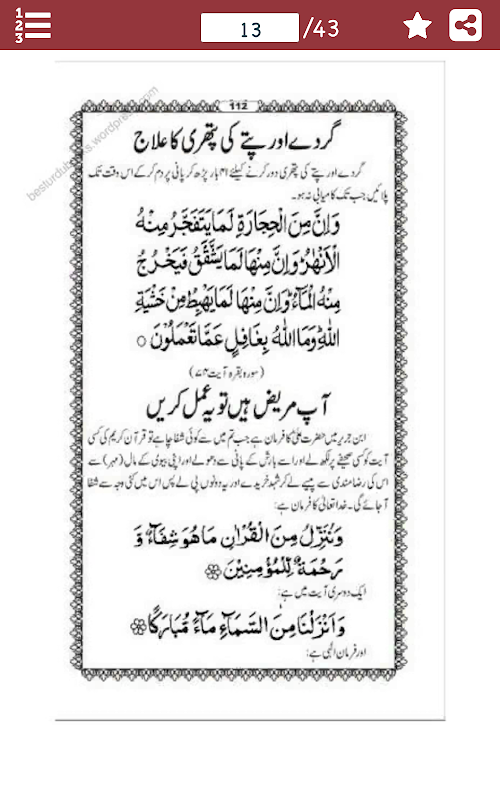 1
2
3
13 /43
112
besturdubooks.wordpress.com
گردے اور پتے کی پتھری کا علاج
گردے اور پتے کی پتھری دور کرنے کیلئے ۴۱ بار پڑھ کر پانی پر دم کر کے اس وقت تک
پلائیں جب تک کامیابی نہ ہو۔
وَاِنَّ مِنَ الْحِجَارَةِ لَمَا يَتَفَجَّرُ مِنْهُ
الْاَنْهٰرُ وَاِنَّ مِنْهَا لَمَا يَشَّقَّقُ فَيَخْرُجُ
مِنْهُ الْمَآءُ وَاِنَّ مِنْهَا لَمَا يَهْبِطُ مِنْ خَشْيَةِ
اللهِ وَمَا اللهُ بِغَافِلٍ عَمَّا تَعْمَلُوْنَ ○
(سورہ بقرہ آیت ۷۴)
آپ مریض ہیں تو یہ عمل کریں
ابن جریر میں حضرت علیؓ کا فرمان ہے جب تم میں سے کوئی شفا چاہے تو قرآن کریم کی کسی
آیت کو کسی صحیفے پر لکھ لے اور اسے بارش کے پانی سے دھو لے اور اپنی بیوی کے مال (مہر) سے
اس کی رضامندی سے پیسے لے کر شہد خریدے اور یہ دونوں پی لے پس اس میں کئی وجہ سے شفا
آ جائے گی۔ خدا تعالیٰ کا فرمان ہے:
وَنُنَزِّلُ مِنَ الْقُرْاٰنِ مَا هُوَ شِفَآءٌ وَّ
رَحْمَةٌ لِّلْمُؤْمِنِيْنَ
ایک دوسری آیت میں ہے:
وَاَنْزَلْنَا مِنَ السَّمَآءِ مَآءً مُّبَارَكًا
اور فرمان الٰہی ہے: